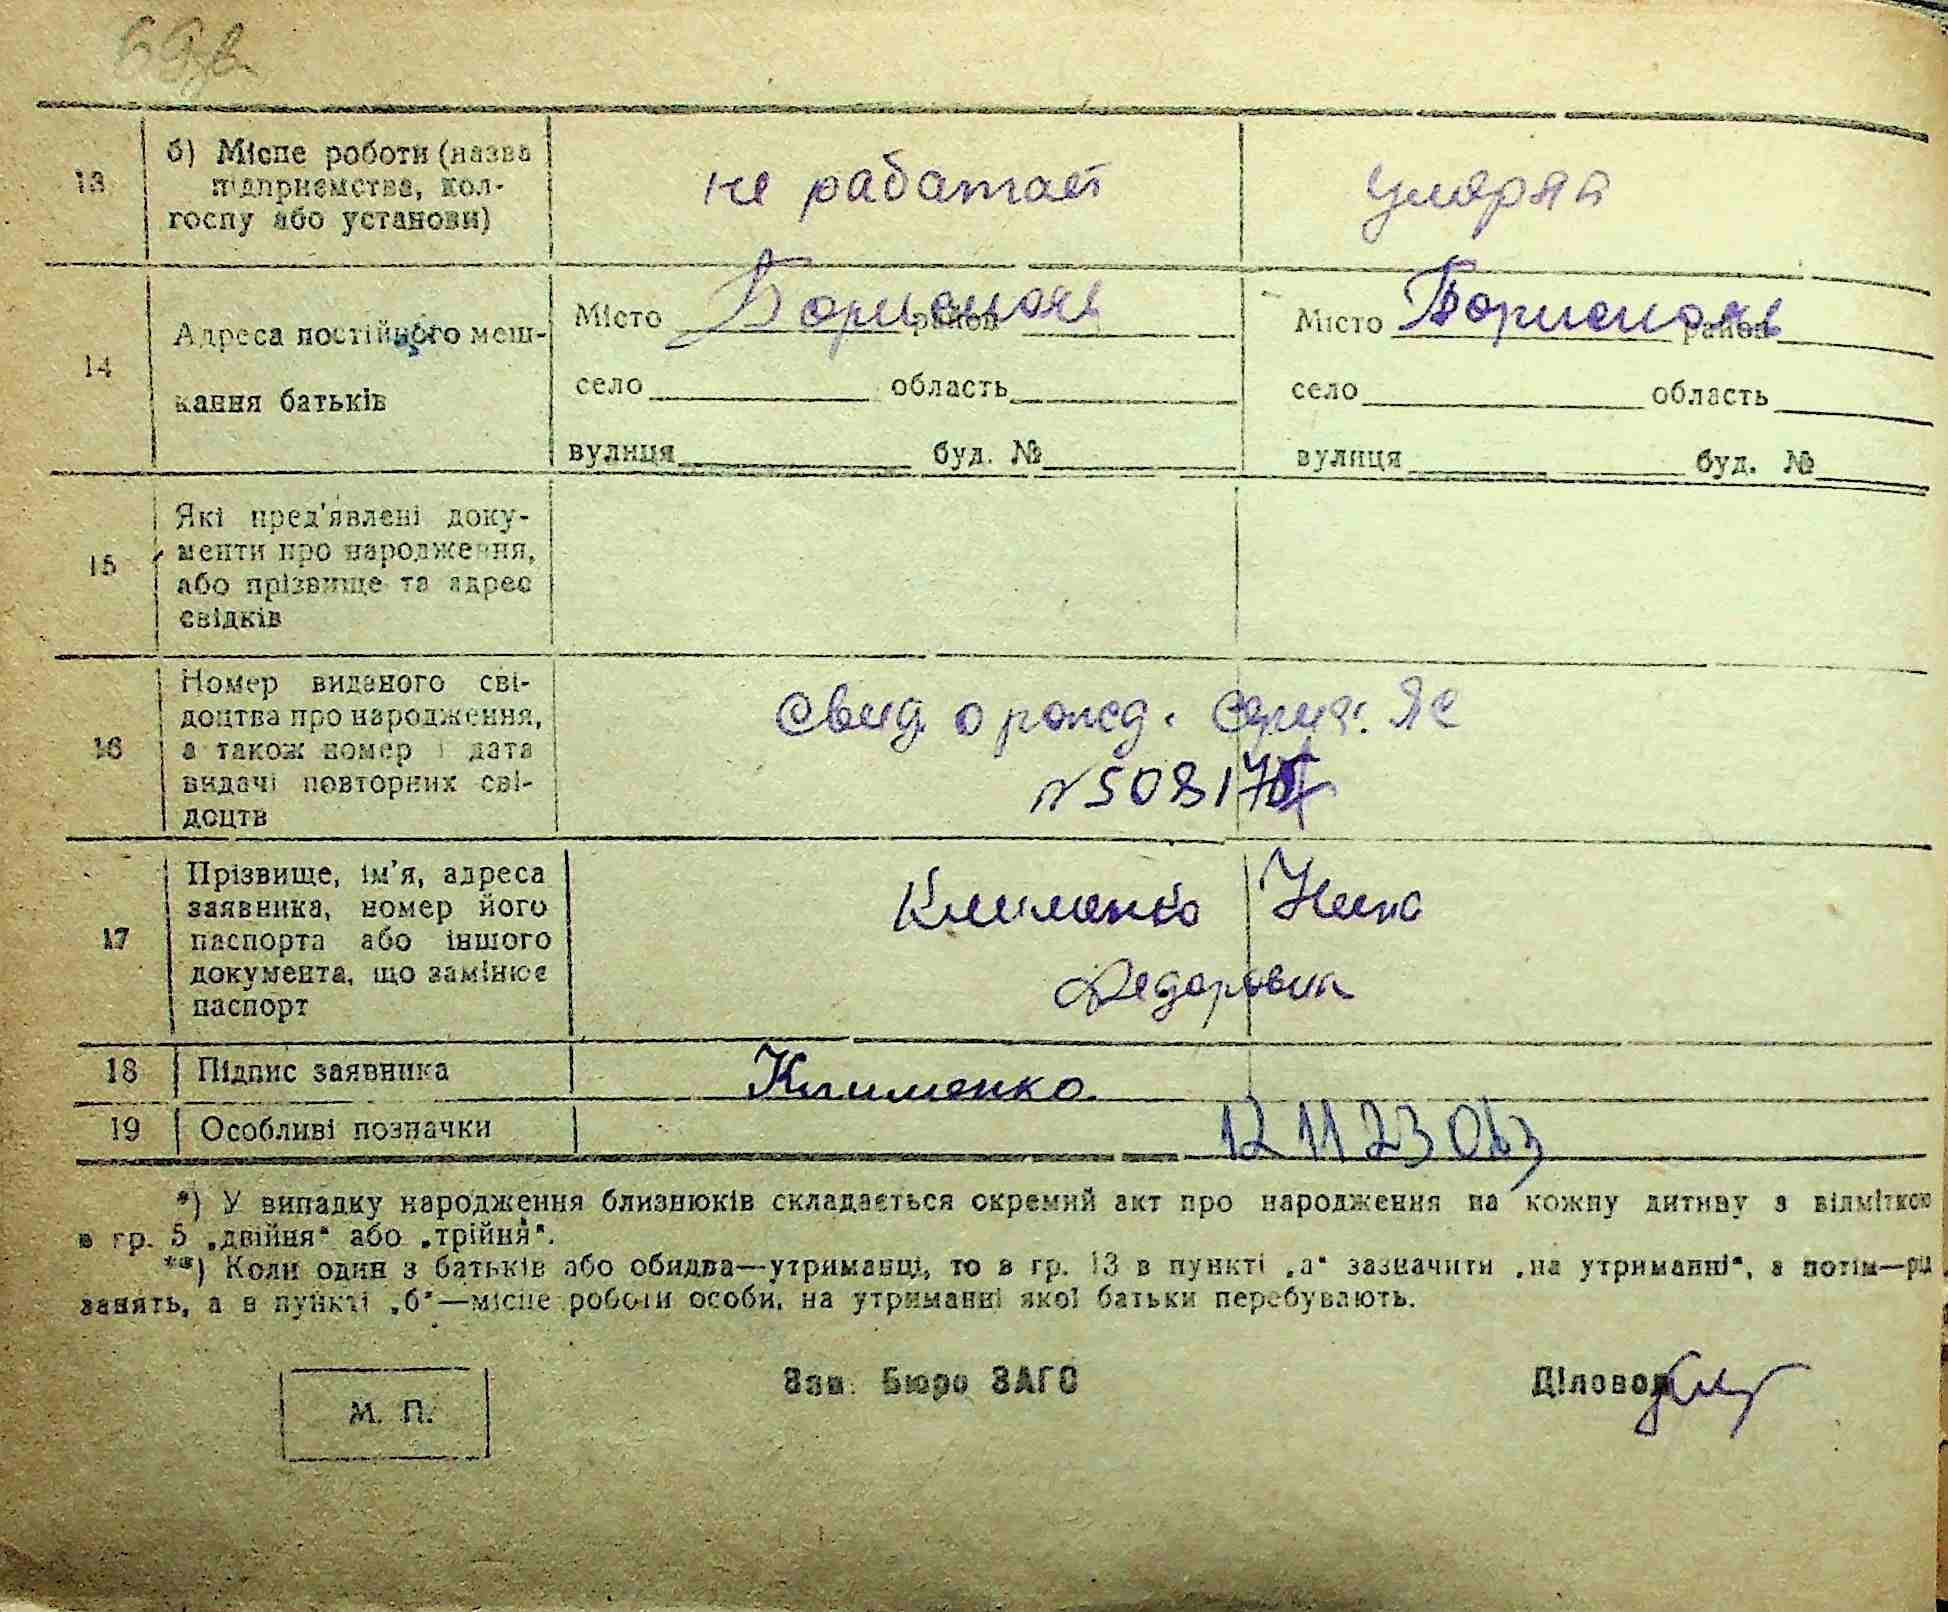 13
б) Місце роботи (назва
підприємства, кол-
госпу або установи)
не работает
умерла
14
Адреса постійного меш-
кання батьків
Місто Борисполь район
село область
вулиця буд. №
Місто Борисполь район
село область
вулиця буд. №
15
Які пред'явлені доку-
менти про народження,
або прізвище та адрес
свідків
16
Номер виданого сві-
доцтва про народження,
а також номер і дата
видачі повторних сві-
доцтв
Свид. о рожд. серия: ЯС
№ 50817
17
Прізвище, ім'я, адреса
заявника, номер його
паспорта або іншого
документа, що замінює
паспорт
Клименко Нина
Федоровна
18
Підпис заявника
Клименко
19
Особливі позначки
12 11 23
*) У випадку народження близнюків складається окремий акт про народження на кожну дитину з відміткою
в гр. 5 „двійня“ або „трійня“.
**) Коли один з батьків або обидва—утриманці, то в гр. 13 в пункті „а“ зазначити „на утриманні“, а потім—рід
занять, а в пункті „б“—місце роботи особи, на утриманні якої батьки перебувають.
М. П.
Зав. Бюро ЗАГС
Діловод